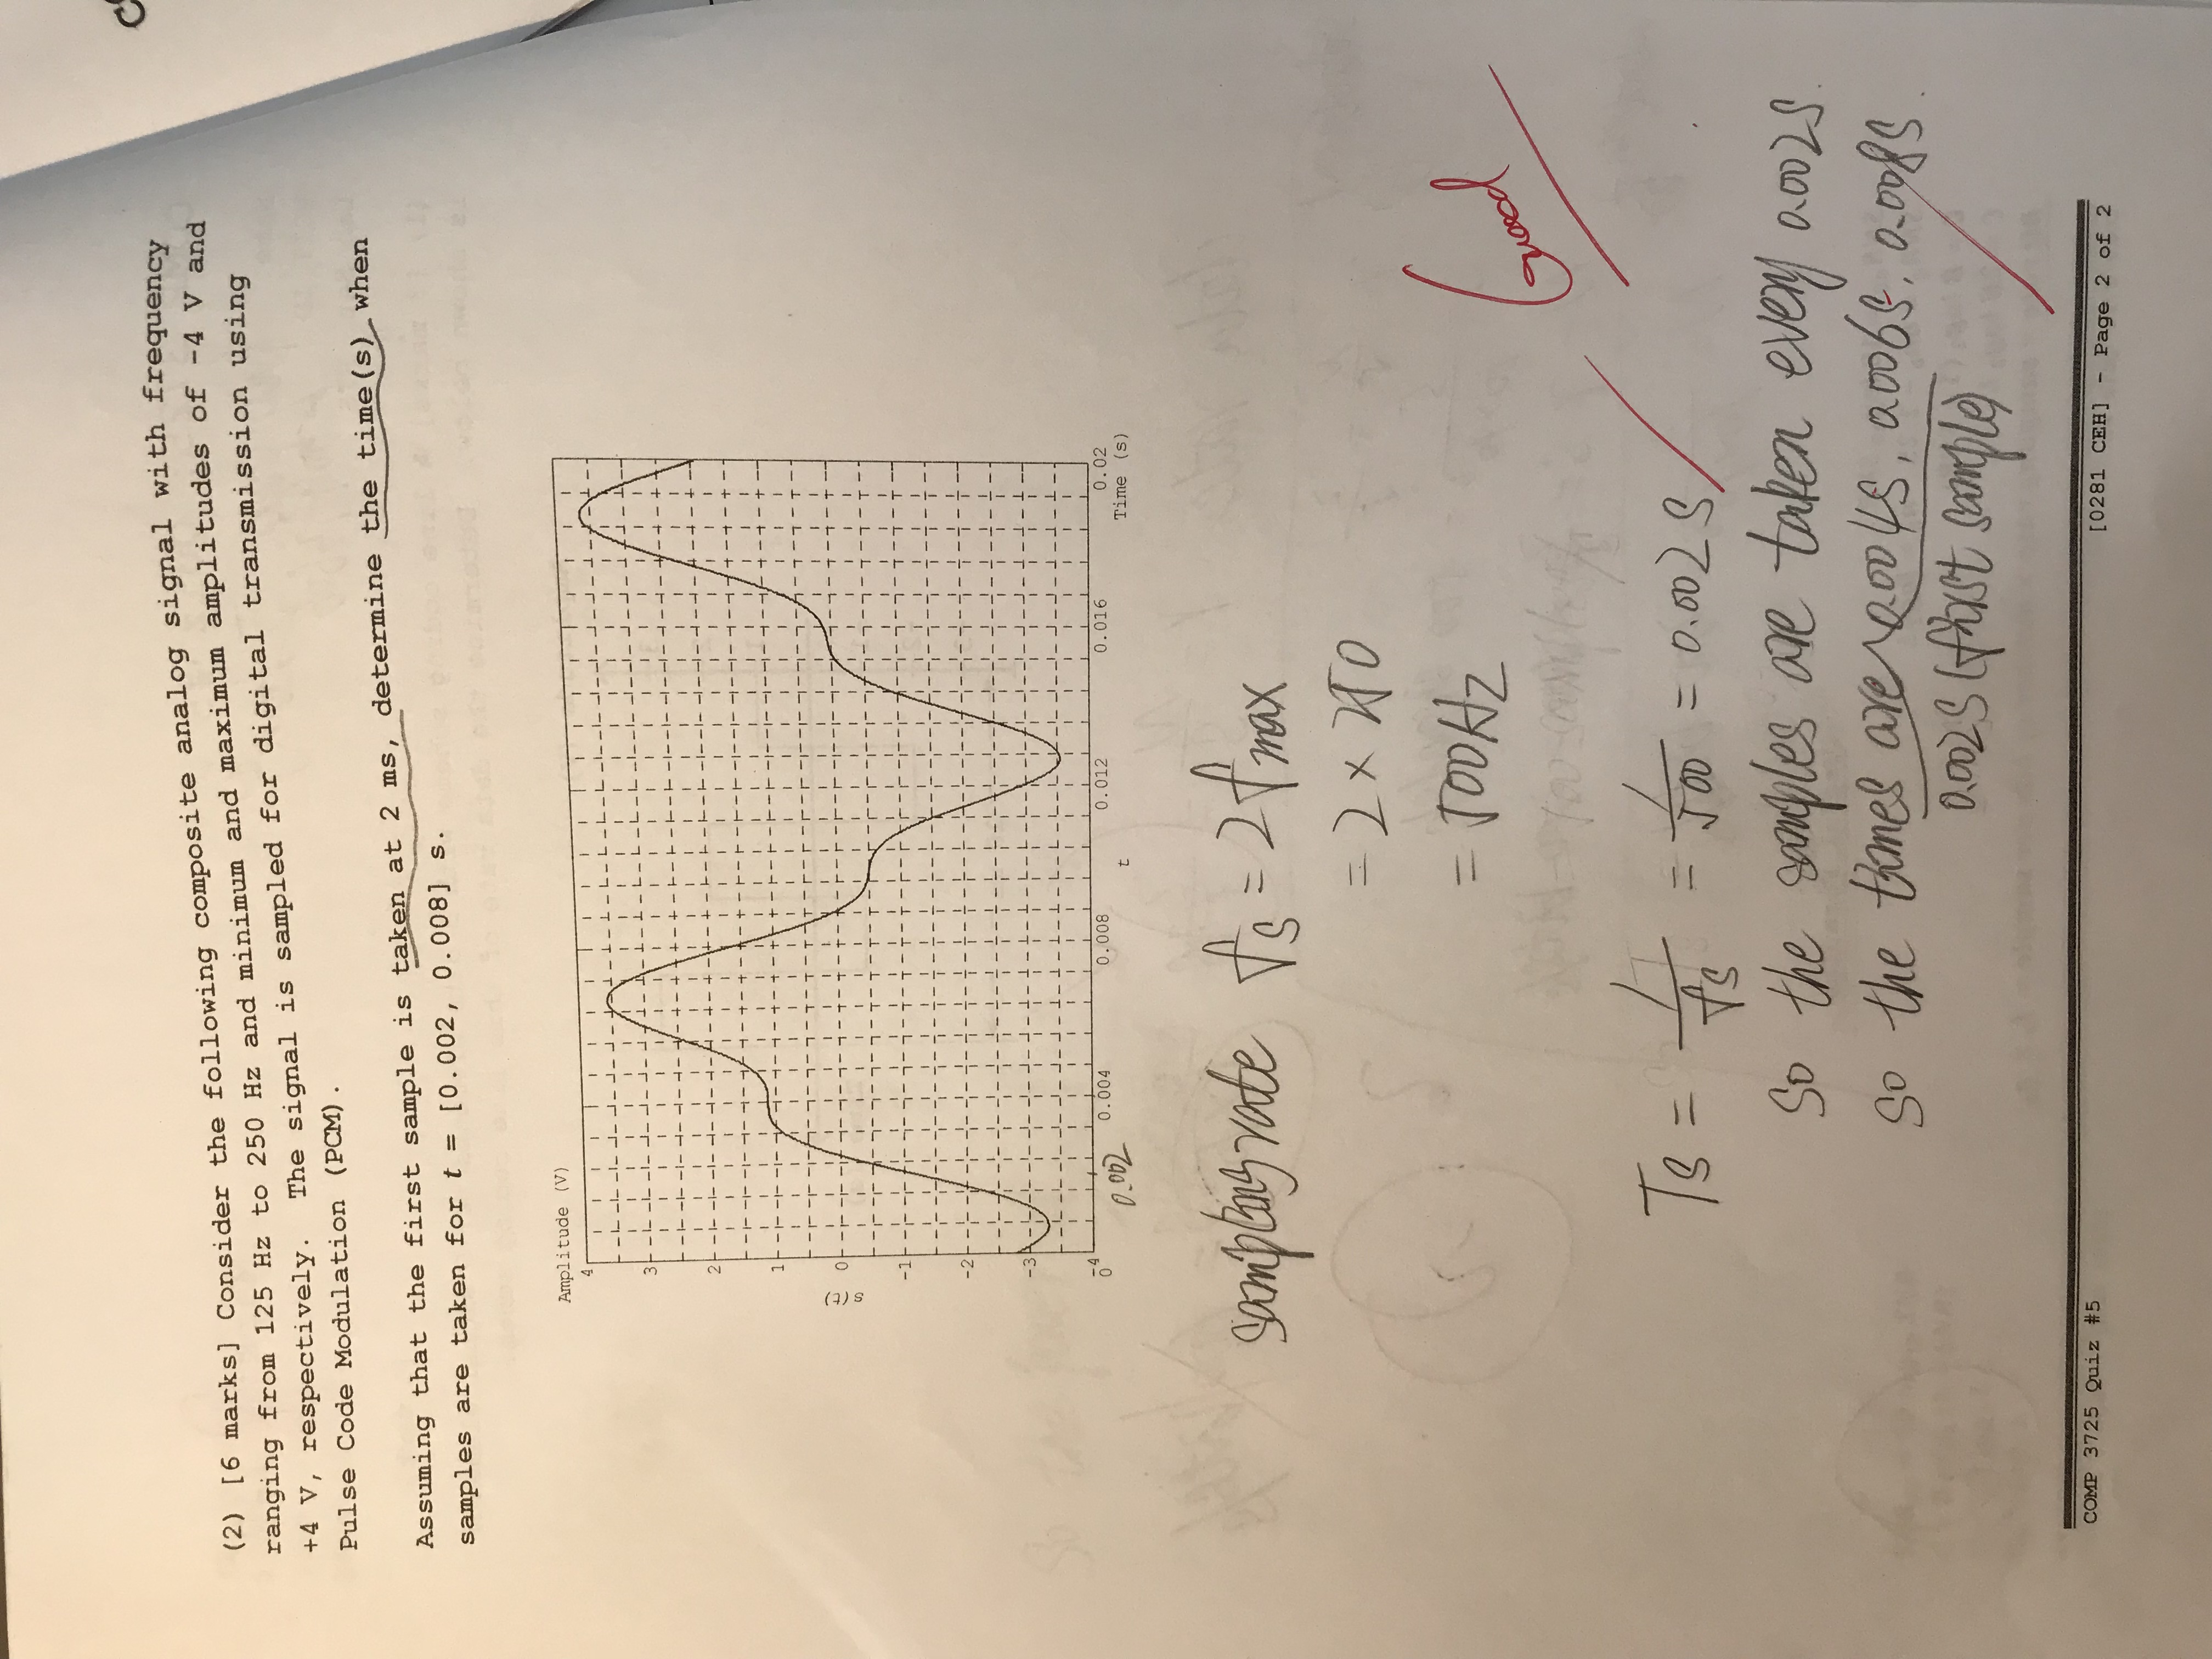 (2) [6 marks] Consider the following composite analog signal with frequency
ranging from 125 Hz to 250 Hz and minimum and maximum amplitudes of -4 V and
+4 V, respectively. The signal is sampled for digital transmission using
Pulse Code Modulation (PCM).
Assuming that the first sample is taken at 2 ms, determine the time(s) when
samples are taken for t = [0.002, 0.008] s.
Amplitude (V)
4
3
2
1
s(t)
0
-1
-2
-3
-4
0 0.004 0.008 0.012 0.016 0.02
0.002
t
Time (s)
sampling rate fs = 2fmax
= 2 × 250
= 500Hz
Good
Ts = 1/fs = 1/500 = 0.002 s
So the samples are taken every 0.002s.
So the times are 0.004s, 0.006s, 0.008s.
0.002s (first sample)
COMP 3725 Quiz #5
[0281 CEH] - Page 2 of 2